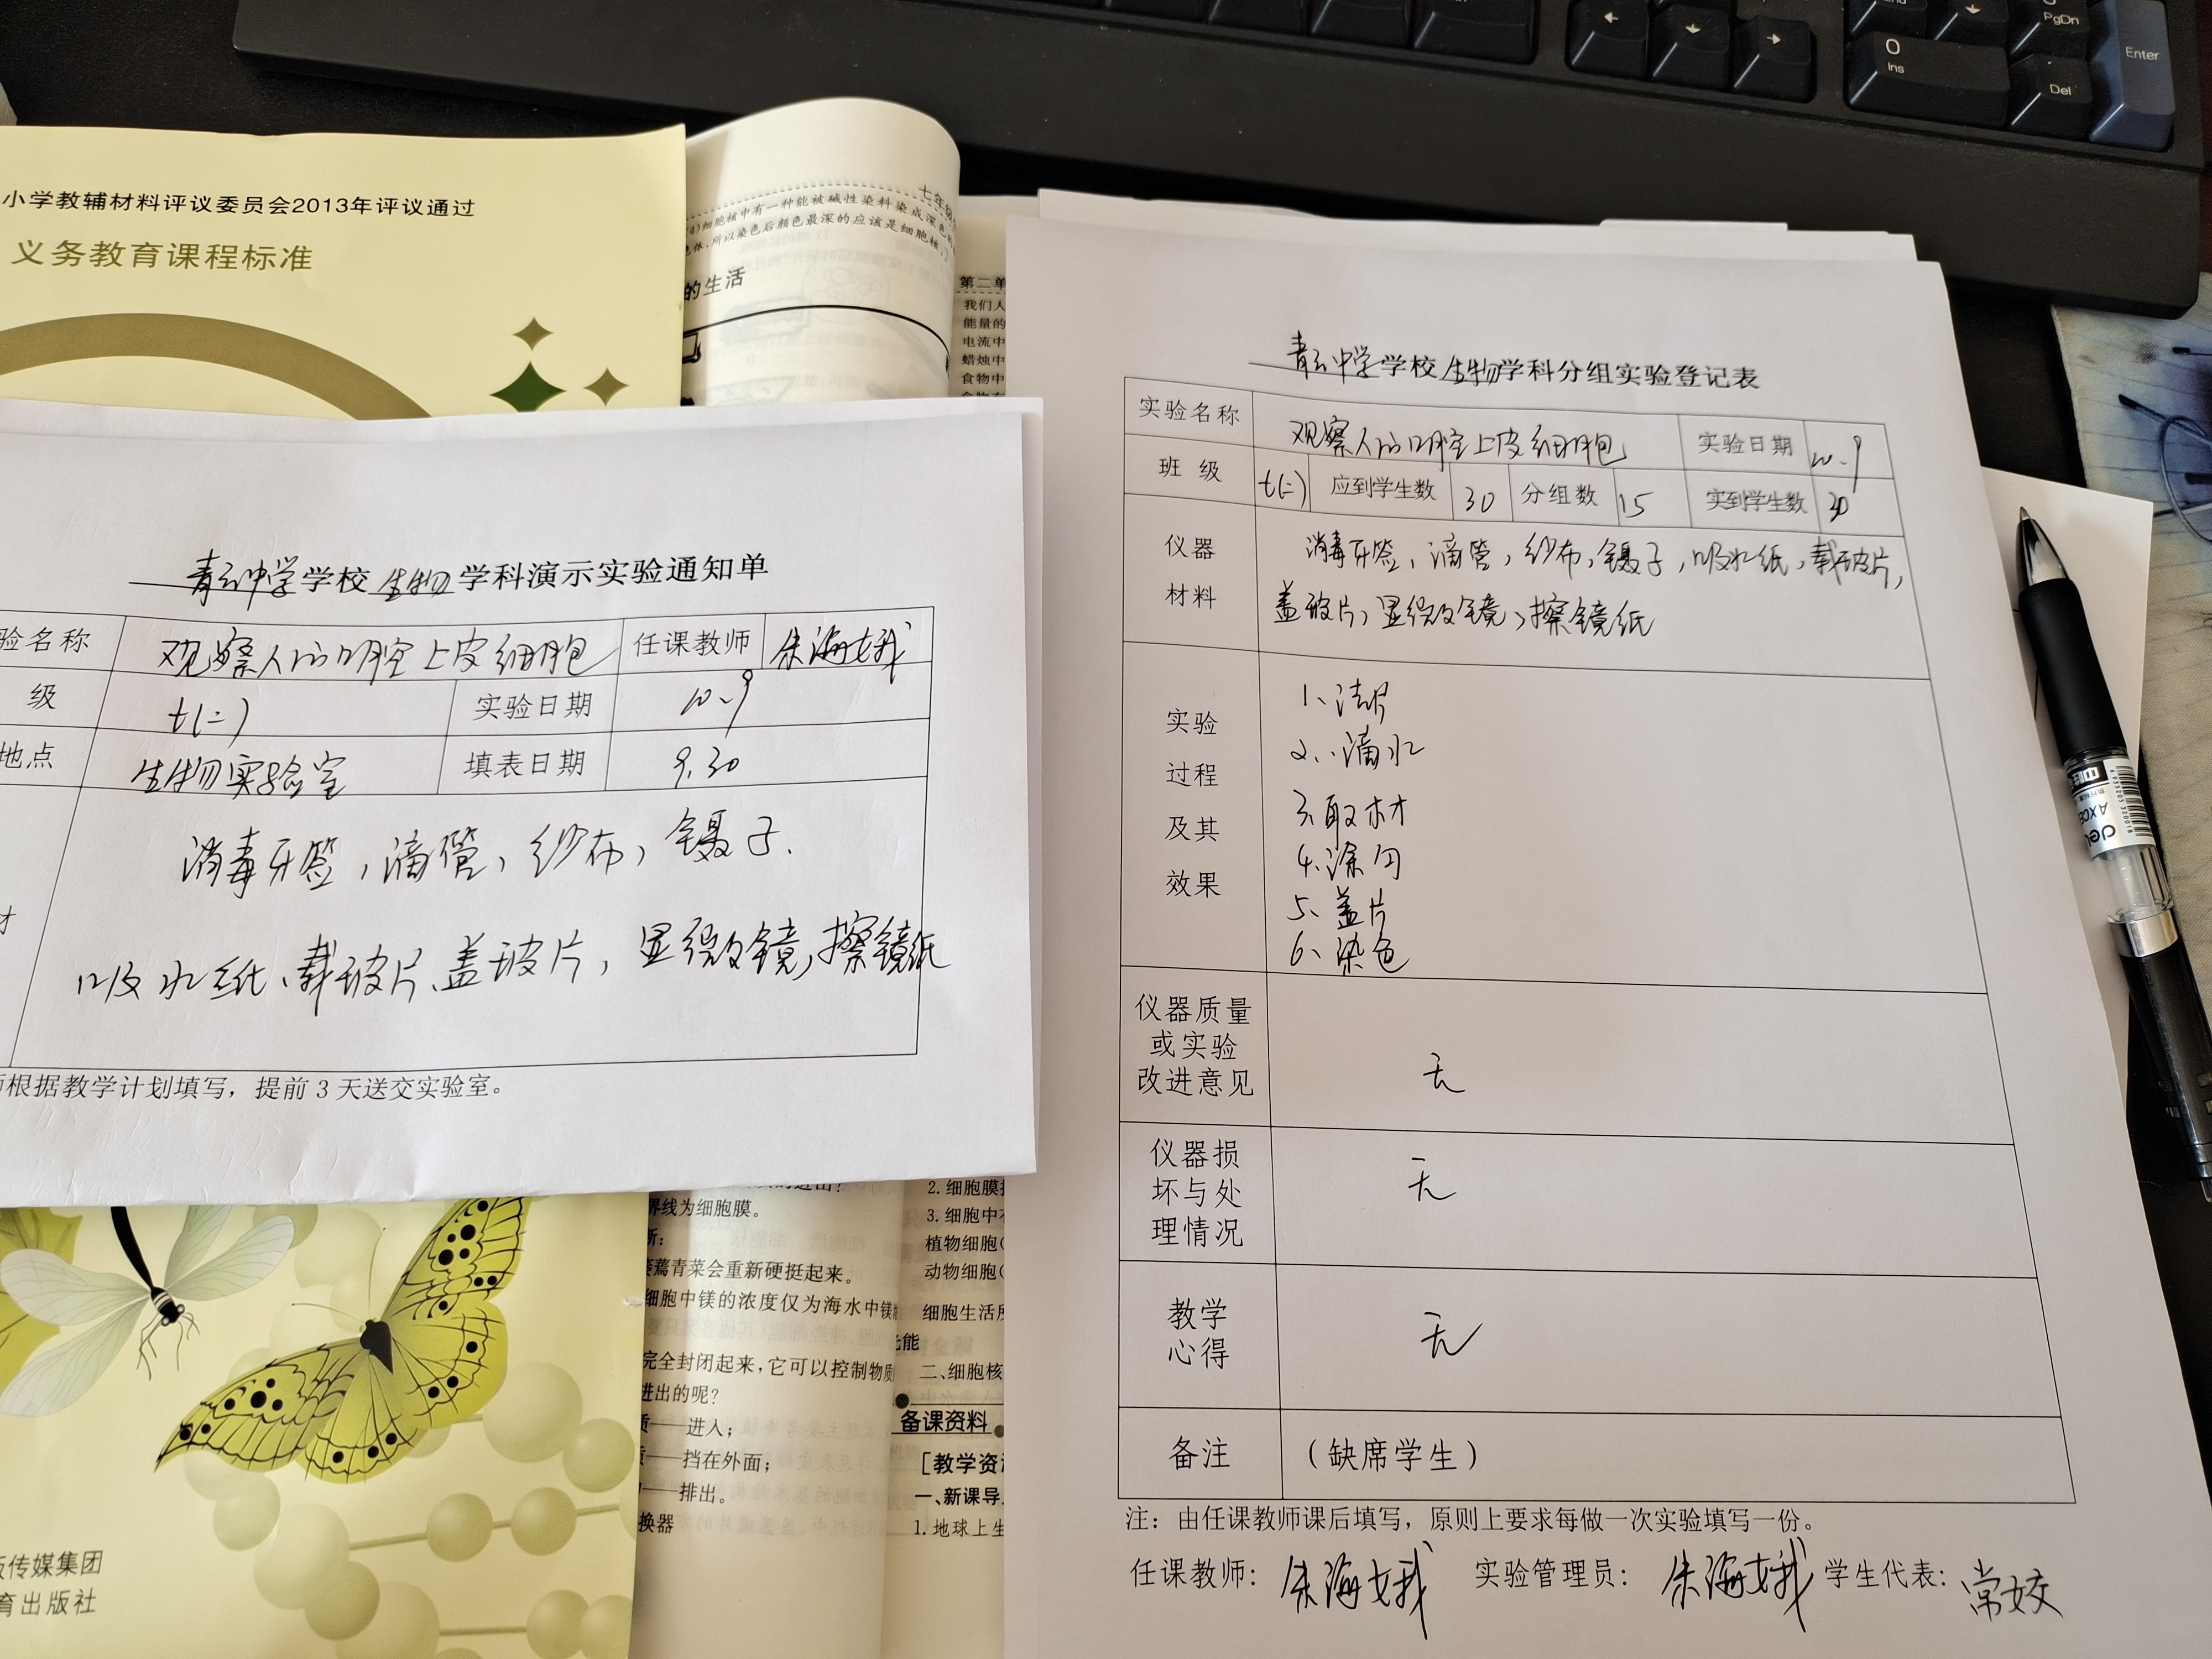 小学教辅材料评议委员会2013年评议通过
义务教育课程标准
青云中学学校生物学科演示实验通知单
验名称 观察人的口腔上皮细胞 任课教师 朱海娥
级 七(二) 实验日期 10.9
地点 生物实验室 填表日期 9.30
消毒牙签,滴管,纱布,镊子.
吸水纸、载玻片、盖玻片,显微镜,擦镜纸
根据教学计划填写,提前3天送交实验室。
传媒集团
育出版社
七年级
(4)细胞核中有一种能被碱性染料染成深色的
色体,所以染色后颜色最深的应该是细胞核。]
的生活
第二单
我们人
能量的
电流中
蜡烛中
食物中
界线为细胞膜。
青菜会重新硬挺起来。
细胞中镁的浓度仅为海水中镁
完全封闭起来,它可以控制物质
进出的呢?
质——进入;
质——挡在外面;
——排出。
换器
2.细胞膜
3.细胞中
植物细胞(
动物细胞(
细胞生活
能
二、细胞核
备课资料
[教学资
一、新课导
1.地球上生
青云中学学校生物学科分组实验登记表
实验名称 观察人的口腔上皮细胞 实验日期 10.9
班级 七(二) 应到学生数 30 分组数 15 实到学生数 30
仪器材料 消毒牙签,滴管,纱布,镊子,吸水纸,载玻片,
盖玻片,显微镜,擦镜纸
实验过程及其效果
1、洁片
2、滴水
3、取材
4、涂匀
5、盖片
6、染色
仪器质量或实验改进意见 无
仪器损坏与处理情况 无
教学心得 无
备注 (缺席学生)
注:由任课教师课后填写,原则上要求每做一次实验填写一份。
任课教师:朱海娥 实验管理员:朱海娥 学生代表:常姣
End
PgDn
Enter
0
Ins
Del
deli